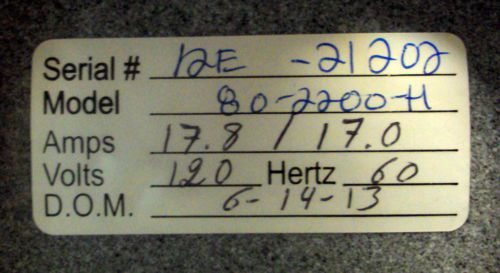 Serial # 12E -21202
Model 80-2200-H
Amps 17.8 / 17.0
Volts 120 Hertz 60
D.O.M. 6-14-13